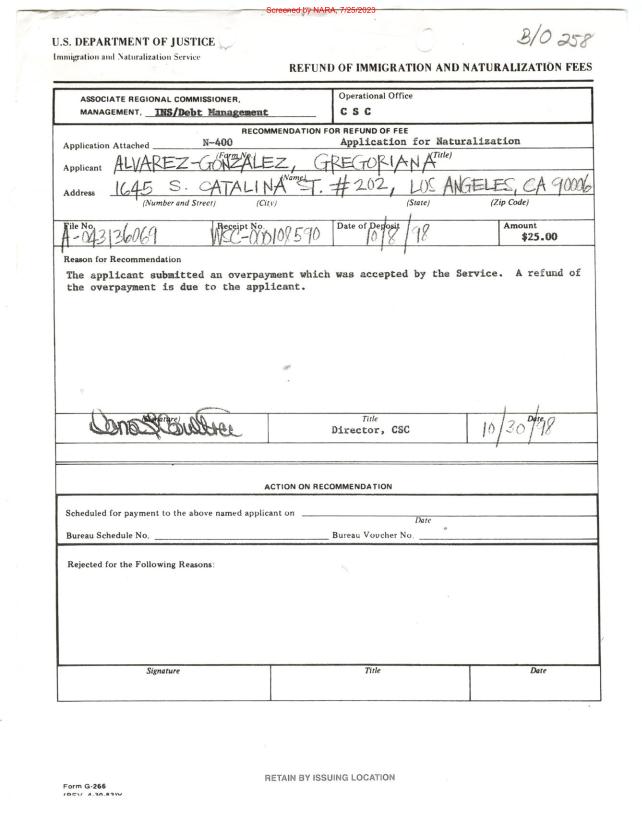 Screened by NARA, 7/25/2023
B/O 258
U.S. DEPARTMENT OF JUSTICE
Immigration and Naturalization Service
REFUND OF IMMIGRATION AND NATURALIZATION FEES
ASSOCIATE REGIONAL COMMISSIONER,
MANAGEMENT, INS/Debt Management
Operational Office
C S C
RECOMMENDATION FOR REFUND OF FEE
Application Attached N-400 Application for Naturalization
(Form No.) (Title)
Applicant ALVAREZ-GONZALEZ, GREGORIANA
(Name)
Address 1645 S. CATALINA ST. #202, LOS ANGELES, CA 90006
(Number and Street) (City) (State) (Zip Code)
File No. Receipt No. Date of Deposit Amount
A-043136069 WSC-000108590 10/8/98 $25.00
Reason for Recommendation
The applicant submitted an overpayment which was accepted by the Service. A refund of
the overpayment is due to the applicant.
(Signature) Title Date
Director, CSC 10/30/98
ACTION ON RECOMMENDATION
Scheduled for payment to the above named applicant on
Date
Bureau Schedule No. Bureau Voucher No.
Rejected for the Following Reasons:
Signature Title Date
RETAIN BY ISSUING LOCATION
Form G-266